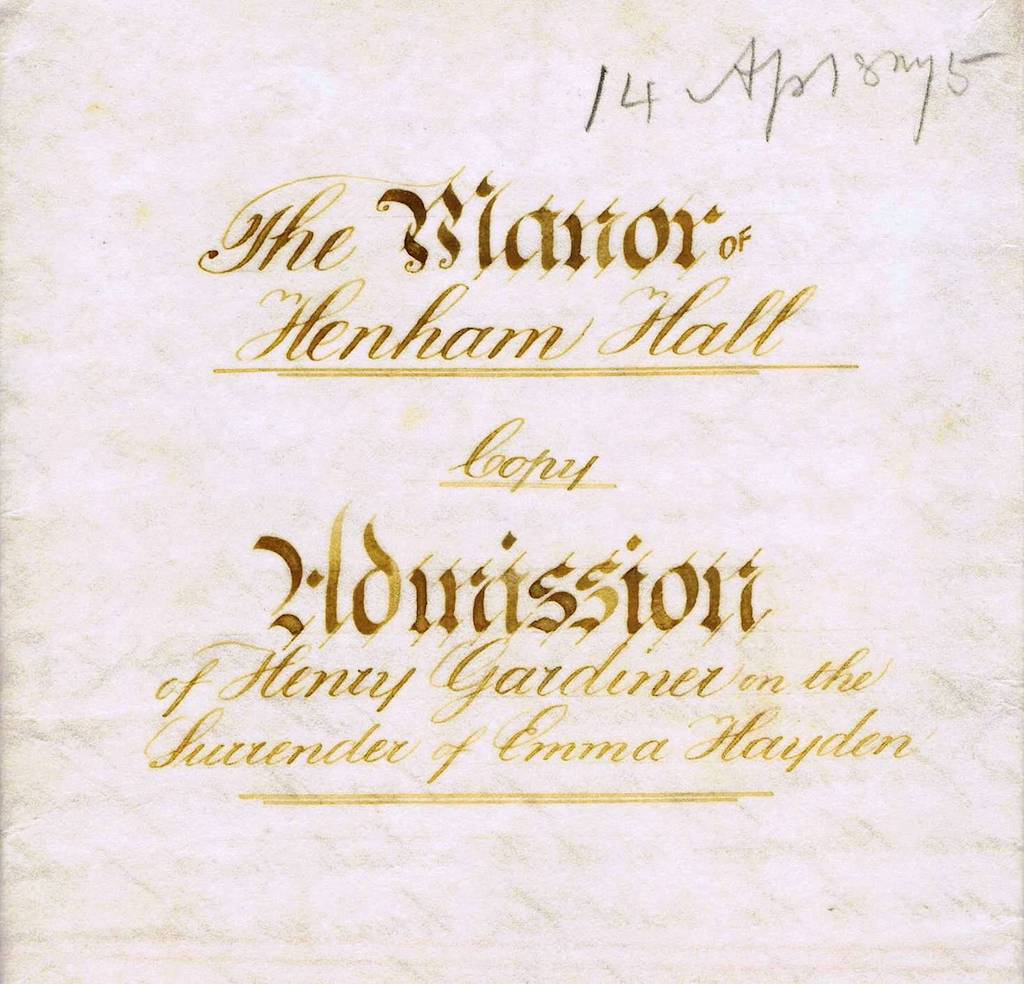 14 Apl 1875
The Manor OF
Henham Hall
Copy
Admission
of Henry Gardiner on the
Surrender of Emma Hayden